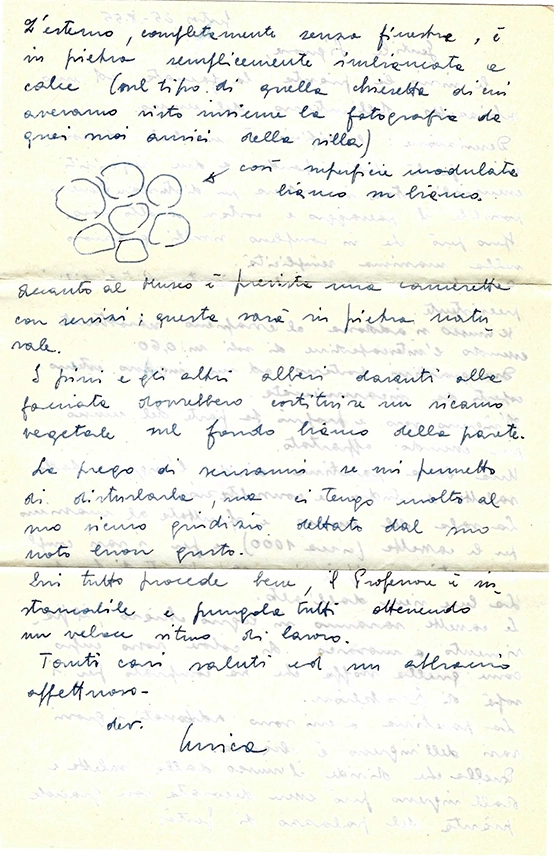 L'esterno, completamente senza finestre, è
in pietra semplicemente imbiancata a
calce (sul tipo di quella chiesetta di cui
avevamo visto insieme la fotografia da
quei suoi amici della villa)
così superficie modulata
bianco su bianco.
Accanto al Museo è prevista una cameretta
con servizi; questa sarà in pietra natu
rale.
I pini e gli altri alberi davanti alla
facciata dovrebbero costituire un ricamo
vegetale sul fondo bianco della parete.
La prego di scusarmi se mi permetto
di disturbarla, ma ci tengo molto al
suo sicuro giudizio dettato dal suo
noto buon gusto.
Qui tutto procede bene, il Professore è in
stancabile e pungola tutti ottenendo
un veloce ritmo di lavoro.
Tanti cari saluti ed un abbraccio
affettuoso-
dev.